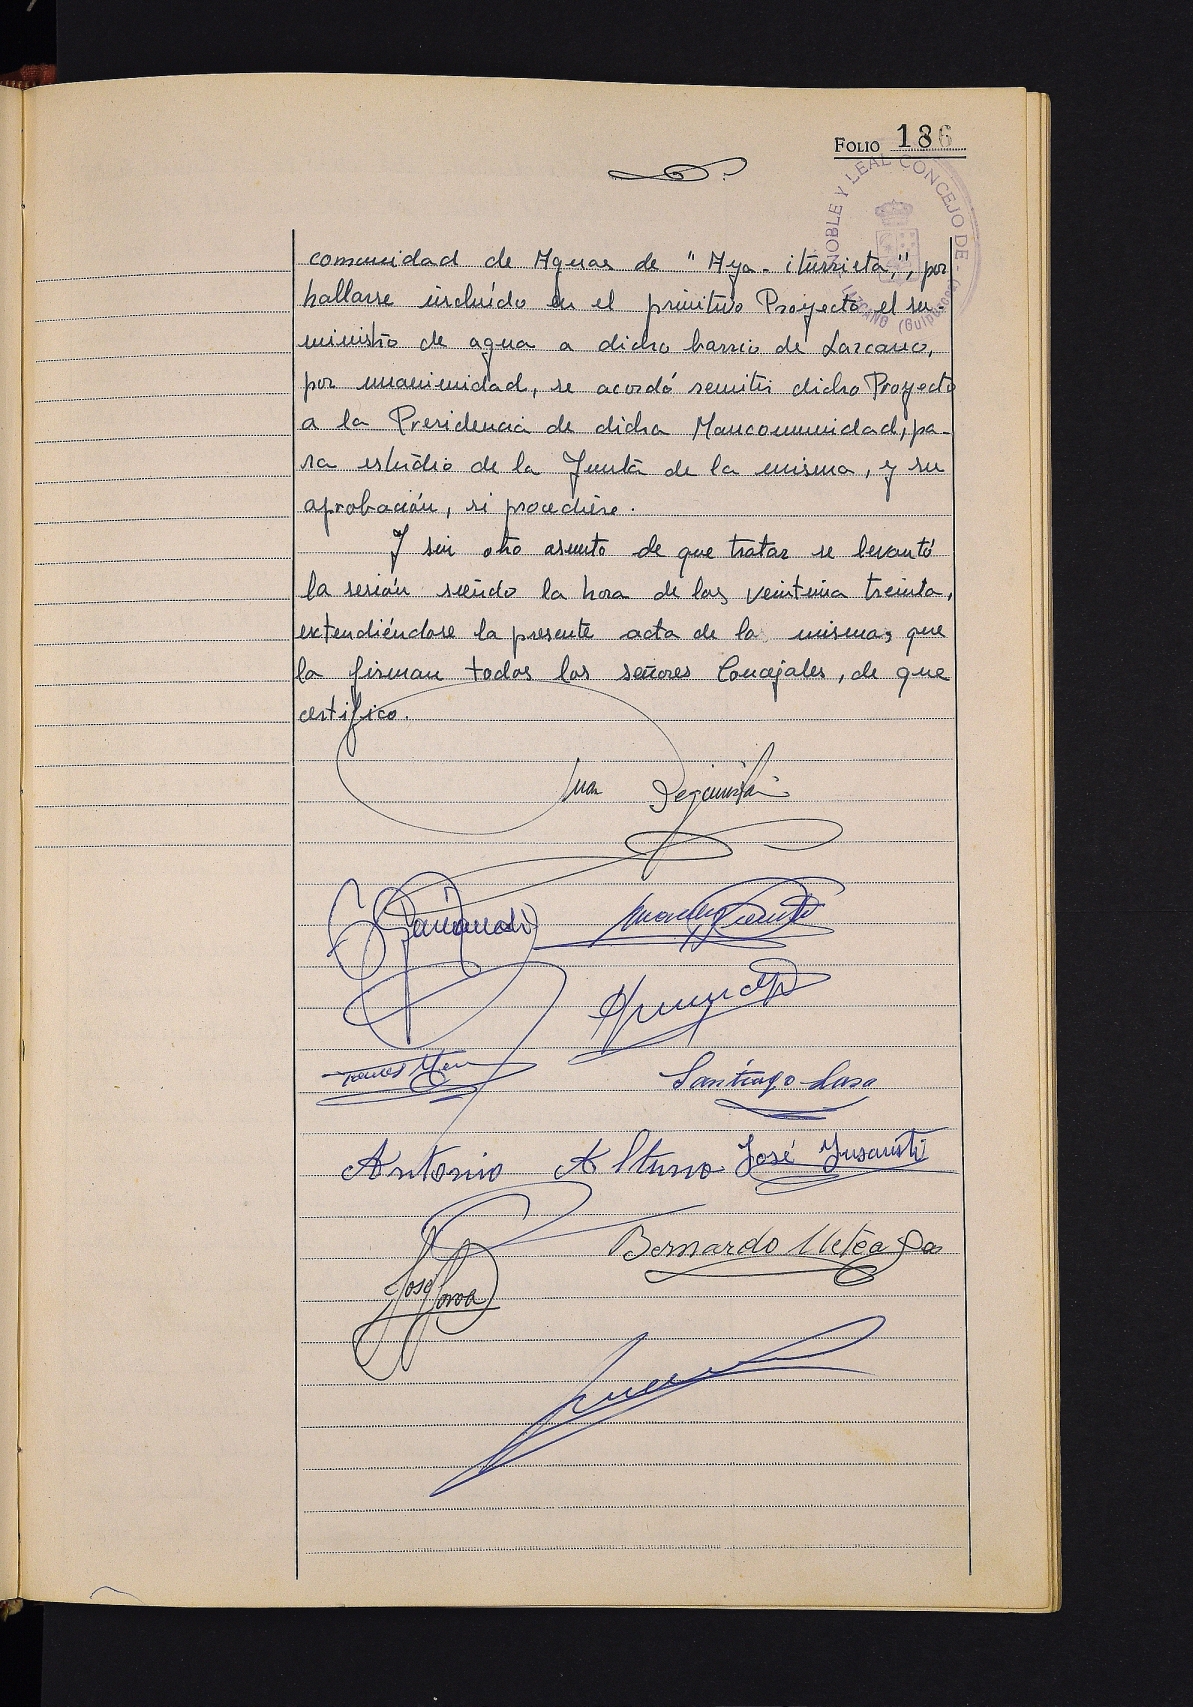 FOLIO 186
NOBLE Y LEAL CONCEJO DE - LAZCANO (Guipúzcoa)
comunidad de Aguas de "Aya-iturrieta,", por
hallarse incluído en el primitivo Proyecto el su-
ministro de agua a dicho barrio de Lazcano,
por unanimidad, se acordó remitir dicho Proyecto
a la Presidencia de dicha Mancomunidad, pa-
ra estudio de la Junta de la misma, y su
aprobación, si procediere.
Y sin otro asunto de que tratar se levantó
la sesión siendo la hora de las veintiuna treinta,
extendiéndose la presente acta de la misma, que
la firman todos los señores Concejales, de que
certifico.
Juan
Santiago Lasa
Antonio Altuna José
José
Bernardo